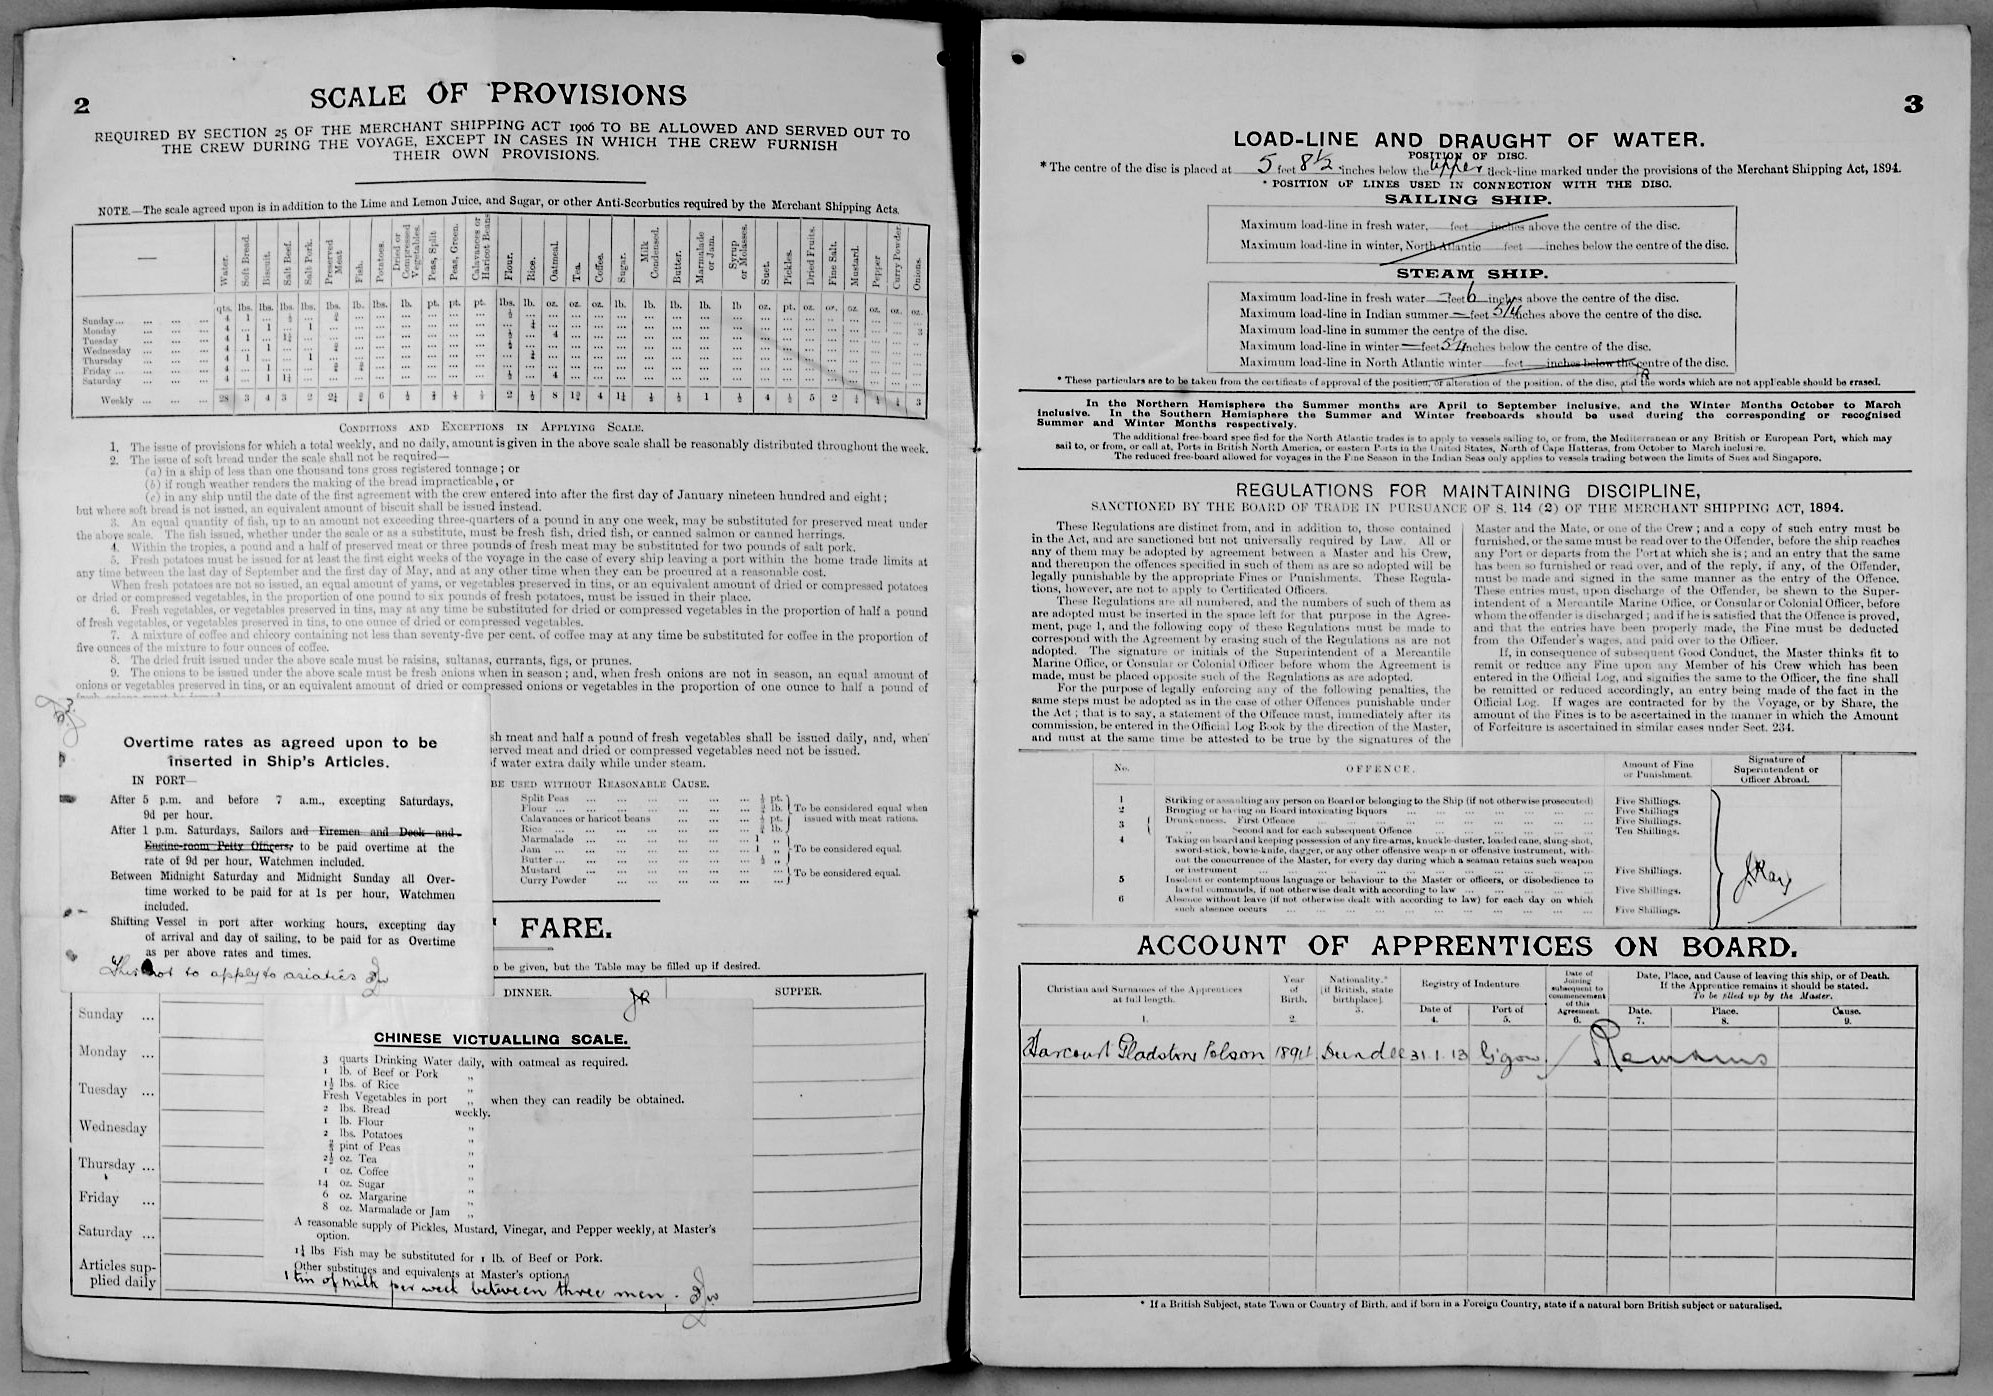 2
SCALE OF PROVISIONS
REQUIRED BY SECTION 25 OF THE MERCHANT SHIPPING ACT 1906 TO BE ALLOWED AND SERVED OUT TO
THE CREW DURING THE VOYAGE, EXCEPT IN CASES IN WHICH THE CREW FURNISH
THEIR OWN PROVISIONS.
NOTE.—The scale agreed upon is in addition to the Lime and Lemon Juice, and Sugar, or other Anti-Scorbutics required by the Merchant Shipping Acts.
— Water. Soft Bread. Biscuit. Salt Beef. Salt Pork. Preserved Meat Fish. Potatoes. Dried or Compressed Vegetables. Peas, Split Peas, Green. Calavances or Haricot Beans Flour. Rice. Oatmeal. Tea. Coffee. Sugar. Milk Condensed. Butter. Marmalade or Jam. Syrup or Molasses. Suet. Pickles. Dried Fruits. Fine Salt. Mustard. Pepper Curry Powder. Onions.
qts. lbs. lbs. lbs. lbs. lbs. lb. lbs. lb. pt. pt. pt. lbs. lb. oz. oz. oz. lb. lb. lb. lb. lb oz. pt. oz. oz. oz. oz. oz. oz.
Sunday... 4 1
Monday 4 1 1 3
Tuesday 4 1 4
Wednesday 4 1
Thursday 4 1 1
Friday ... 4 1
Saturday 4 1 1¼ 4
Weekly 28 3 4 3 2 2¼ 6 2 8 1¾ 4 1¼ 1 4 5 2 3
CONDITIONS AND EXCEPTIONS IN APPLYING SCALE.
1. The issue of provisions for which a total weekly, and no daily, amount is given in the above scale shall be reasonably distributed throughout the week.
2. The issue of soft bread under the scale shall not be required—
(a) in a ship of less than one thousand tons gross registered tonnage; or
(b) if rough weather renders the making of the bread impracticable, or
(c) in any ship until the date of the first agreement with the crew entered into after the first day of January nineteen hundred and eight;
but where soft bread is not issued, an equivalent amount of biscuit shall be issued instead.
3. An equal quantity of fish, up to an amount not exceeding three-quarters of a pound in any one week, may be substituted for preserved meat under
the above scale. The fish issued, whether under the scale or as a substitute, must be fresh fish, dried fish, or canned salmon or canned herrings.
4. Within the tropics, a pound and a half of preserved meat or three pounds of fresh meat may be substituted for two pounds of salt pork.
5. Fresh potatoes must be issued for at least the first eight weeks of the voyage in the case of every ship leaving a port within the home trade limits at
any time between the last day of September and the first day of May, and at any other time when they can be procured at a reasonable cost.
When fresh potatoes are not so issued, an equal amount of yams, or vegetables preserved in tins, or an equivalent amount of dried or compressed potatoes
or dried or compressed vegetables, in the proportion of one pound to six pounds of fresh potatoes, must be issued in their place.
6. Fresh vegetables, or vegetables preserved in tins, may at any time be substituted for dried or compressed vegetables in the proportion of half a pound
of fresh vegetables, or vegetables preserved in tins, to one ounce of dried or compressed vegetables.
7. A mixture of coffee and chicory containing not less than seventy-five per cent. of coffee may at any time be substituted for coffee in the proportion of
five ounces of the mixture to four ounces of coffee.
8. The dried fruit issued under the above scale must be raisins, sultanas, currants, figs, or prunes.
9. The onions to be issued under the above scale must be fresh onions when in season; and, when fresh onions are not in season, an equal amount of
onions or vegetables preserved in tins, or an equivalent amount of dried or compressed onions or vegetables in the proportion of one ounce to half a pound of
sh meat and half a pound of fresh vegetables shall be issued daily, and, when
erved meat and dried or compressed vegetables need not be issued.
f water extra daily while under steam.
BE USED WITHOUT REASONABLE CAUSE.
Split Peas ... ½ pt.
Flour ... ½ lb. To be considered equal when
Calavances or haricot beans pt. issued with meat rations.
Rice ... lb.
Marmalade ... 1 „
Jam ... 1 „ To be considered equal.
Butter ... ½ „
Mustard
Curry Powder To be considered equal.
Overtime rates as agreed upon to be
inserted in Ship's Articles.
IN PORT—
After 5 p.m. and before 7 a.m., excepting Saturdays,
9d per hour.
After 1 p.m. Saturdays, Sailors and Firemen and Deck and
Engine-room Petty Officers, to be paid overtime at the
rate of 9d per hour, Watchmen included.
Between Midnight Saturday and Midnight Sunday all Over-
time worked to be paid for at 1s per hour, Watchmen
included.
Shifting Vessel in port after working hours, excepting day
of arrival and day of sailing, to be paid for as Overtime
as per above rates and times.
This not to apply to asiatics
FARE.
o be given, but the Table may be filled up if desired.
DINNER. JR SUPPER.
Sunday ...
Monday ...
Tuesday ...
Wednesday
Thursday ...
Friday ...
Saturday ...
Articles sup-
plied daily
CHINESE VICTUALLING SCALE.
3 quarts Drinking Water daily, with oatmeal as required.
1 lb. of Beef or Pork „
1½ lbs. of Rice „
Fresh Vegetables in port „ when they can readily be obtained.
2 lbs. Bread weekly.
1 lb. Flour „
2 lbs. Potatoes „
pint of Peas „
2½ oz. Tea „
1 oz. Coffee „
14 oz. Sugar „
6 oz. Margarine „
8 oz. Marmalade or Jam „
A reasonable supply of Pickles, Mustard, Vinegar, and Pepper weekly, at Master's
option.
1¼ lbs Fish may be substituted for 1 lb. of Beef or Pork.
Other substitutes and equivalents at Master's option.
1 tin of Milk per week between three men.
3
LOAD-LINE AND DRAUGHT OF WATER.
POSITION OF DISC.
* The centre of the disc is placed at 5 feet 8½ inches below the upper deck-line marked under the provisions of the Merchant Shipping Act, 1894.
* POSITION OF LINES USED IN CONNECTION WITH THE DISC.
SAILING SHIP.
Maximum load-line in fresh water, feet inches above the centre of the disc.
Maximum load-line in winter, North Atlantic feet inches below the centre of the disc.
STEAM SHIP.
Maximum load-line in fresh water — feet 6 inches above the centre of the disc.
Maximum load-line in Indian summer — feet 5¼ inches above the centre of the disc.
Maximum load-line in summer the centre of the disc.
Maximum load-line in winter — feet 5¼ inches below the centre of the disc.
Maximum load-line in North Atlantic winter feet inches below the centre of the disc.
* These particulars are to be taken from the certificate of approval of the position, or alteration of the position, of the disc, and the words which are not applicable should be erased.
In the Northern Hemisphere the Summer months are April to September inclusive, and the Winter Months October to March
inclusive. In the Southern Hemisphere the Summer and Winter freeboards should be used during the corresponding or recognised
Summer and Winter Months respectively.
The additional free-board specified for the North Atlantic trades is to apply to vessels sailing to, or from, the Mediterranean or any British or European Port, which may
sail to, or from, or call at, Ports in British North America, or eastern Ports in the United States, North of Cape Hatteras, from October to March inclusive.
The reduced free-board allowed for voyages in the Fine Season in the Indian Seas only applies to vessels trading between the limits of Suez and Singapore.
REGULATIONS FOR MAINTAINING DISCIPLINE,
SANCTIONED BY THE BOARD OF TRADE IN PURSUANCE OF S. 114 (2) OF THE MERCHANT SHIPPING ACT, 1894.
These Regulations are distinct from, and in addition to, those contained
in the Act, and are sanctioned but not universally required by Law. All or
any of them may be adopted by agreement between a Master and his Crew,
and thereupon the offences specified in such of them as are so adopted will be
legally punishable by the appropriate Fines or Punishments. These Regula-
tions, however, are not to apply to Certificated Officers.
These Regulations are all numbered, and the numbers of such of them as
are adopted must be inserted in the space left for that purpose in the Agree-
ment, page 1, and the following copy of these Regulations must be made to
correspond with the Agreement by erasing such of the Regulations as are not
adopted. The signature or initials of the Superintendent of a Mercantile
Marine Office, or Consular or Colonial Officer before whom the Agreement is
made, must be placed opposite such of the Regulations as are adopted.
For the purpose of legally enforcing any of the following penalties, the
same steps must be adopted as in the case of other Offences punishable under
the Act; that is to say, a statement of the Offence must, immediately after its
commission, be entered in the Official Log Book by the direction of the Master,
and must at the same time be attested to be true by the signatures of the
Master and the Mate, or one of the Crew; and a copy of such entry must be
furnished, or the same must be read over to the Offender, before the ship reaches
any Port or departs from the Port at which she is; and an entry that the same
has been so furnished or read over, and of the reply, if any, of the Offender,
must be made and signed in the same manner as the entry of the Offence.
These entries must, upon discharge of the Offender, be shewn to the Super-
intendent of a Mercantile Marine Office, or Consular or Colonial Officer, before
whom the offender is discharged; and if he is satisfied that the Offence is proved,
and that the entries have been properly made, the Fine must be deducted
from the Offender's wages, and paid over to the Officer.
If, in consequence of subsequent Good Conduct, the Master thinks fit to
remit or reduce any Fine upon any Member of his Crew which has been
entered in the Official Log, and signifies the same to the Officer, the fine shall
be remitted or reduced accordingly, an entry being made of the fact in the
Official Log. If wages are contracted for by the Voyage, or by Share, the
amount of the Fines is to be ascertained in the manner in which the Amount
of Forfeiture is ascertained in similar cases under Sect. 234.
No. OFFENCE. Amount of Fine or Punishment. Signature of Superintendent or Officer Abroad.
1 Striking or assaulting any person on Board or belonging to the Ship (if not otherwise prosecuted) Five Shillings.
2 Bringing or having on Board intoxicating liquors Five Shillings.
3 Drunkenness. First Offence Five Shillings.
„ Second and for each subsequent Offence Ten Shillings.
4 Taking on board and keeping possession of any fire-arms, knuckle-duster, loaded cane, slung-shot,
sword-stick, bowie-knife, dagger, or any other offensive weapon or offensive instrument, with-
out the concurrence of the Master, for every day during which a seaman retains such weapon
or instrument Five Shillings.
5 Insolent or contemptuous language or behaviour to the Master or officers, or disobedience to
lawful commands, if not otherwise dealt with according to law Five Shillings.
6 Absence without leave (if not otherwise dealt with according to law) for each day on which
such absence occurs Five Shillings.
ACCOUNT OF APPRENTICES ON BOARD.
Christian and Surnames of the Apprentices at full length. 1. Year of Birth. 2. Nationality.* [if British, state birthplace]. 3. Registry of Indenture Date of 4. Port of 5. Date of Joining subsequent to commencement of this Agreement. 6. Date, Place, and Cause of leaving this ship, or of Death. If the Apprentice remains it should be stated. To be filled up by the Master. Date. 7. Place. 8. Cause. 9.
Harcourt Gladstone Polson 1894 Dundee 31.1.13 Glgow Remains
* If a British Subject, state Town or Country of Birth, and if born in a Foreign Country, state if a natural born British subject or naturalised.